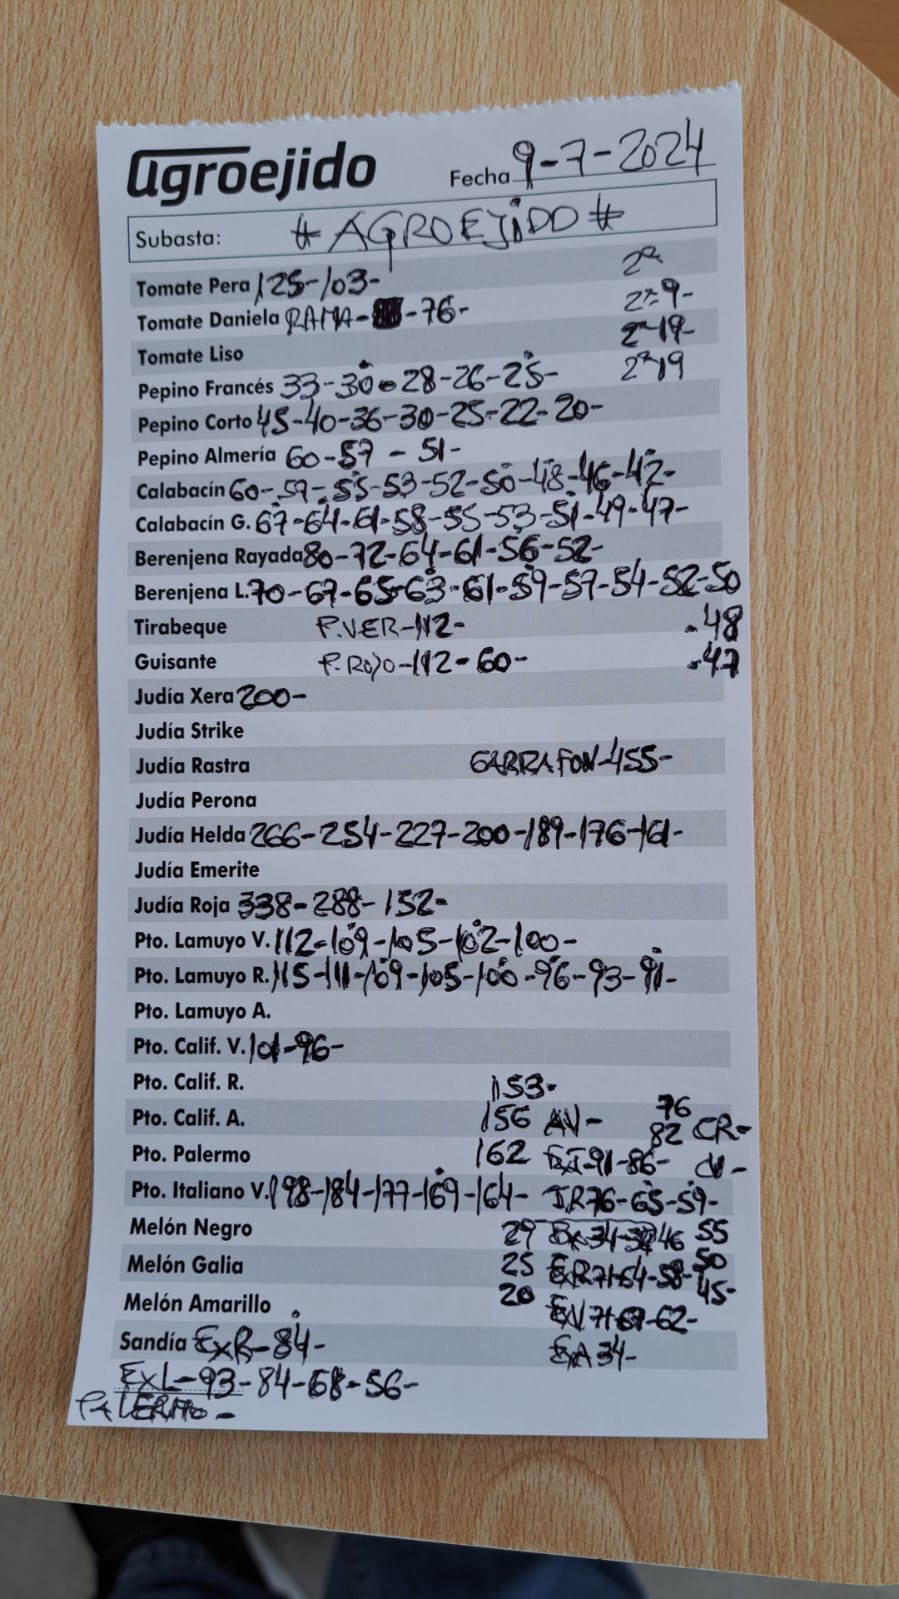 agroejido Fecha 9-7-2024
Subasta: #AGROEJIDO#
Tomate Pera 125-103- 2ª
Tomate Daniela RAMA- -76- 2ª-9-
Tomate Liso 2ª-19-
Pepino Francés 33-30-28-26-25- 2ª19
Pepino Corto 45-40-36-30-25-22-20-
Pepino Almería 60-57-51-
Calabacín 60-59-55-53-52-50-48-46-42-
Calabacín G. 67-64-61-58-55-53-51-49-47-
Berenjena Rayada 80-72-64-61-56-52-
Berenjena L. 70-67-65-63-61-59-57-54-52-50
Tirabeque P.VER-112- -48
Guisante P.ROJO-112-60- -47
Judía Xera 200-
Judía Strike
Judía Rastra GARRAFON-455-
Judía Perona
Judía Helda 266-254-227-200-189-176-161-
Judía Emerite
Judía Roja 338-288-152-
Pto. Lamuyo V. 112-109-105-102-100-
Pto. Lamuyo R. 115-111-109-105-100-96-93-91-
Pto. Lamuyo A.
Pto. Calif. V. 101-96-
Pto. Calif. R. 153-
Pto. Calif. A. 156 AV- 76 82 CR-
Pto. Palermo 162 -91-86-
Pto. Italiano V. 198-184-177-169-164- JR76-65-59-
Melón Negro 29 46 55
Melón Galia 25 50
Melón Amarillo 20 -62- 45-
Sandía ExR-84- 34-
ExL-93-84-68-56-
PALERMO-